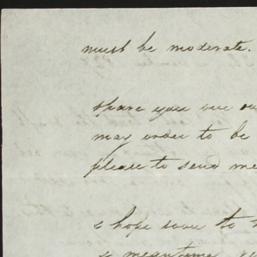 must be moderate.
spare you one
may order to be
please to send me
I hope soon to